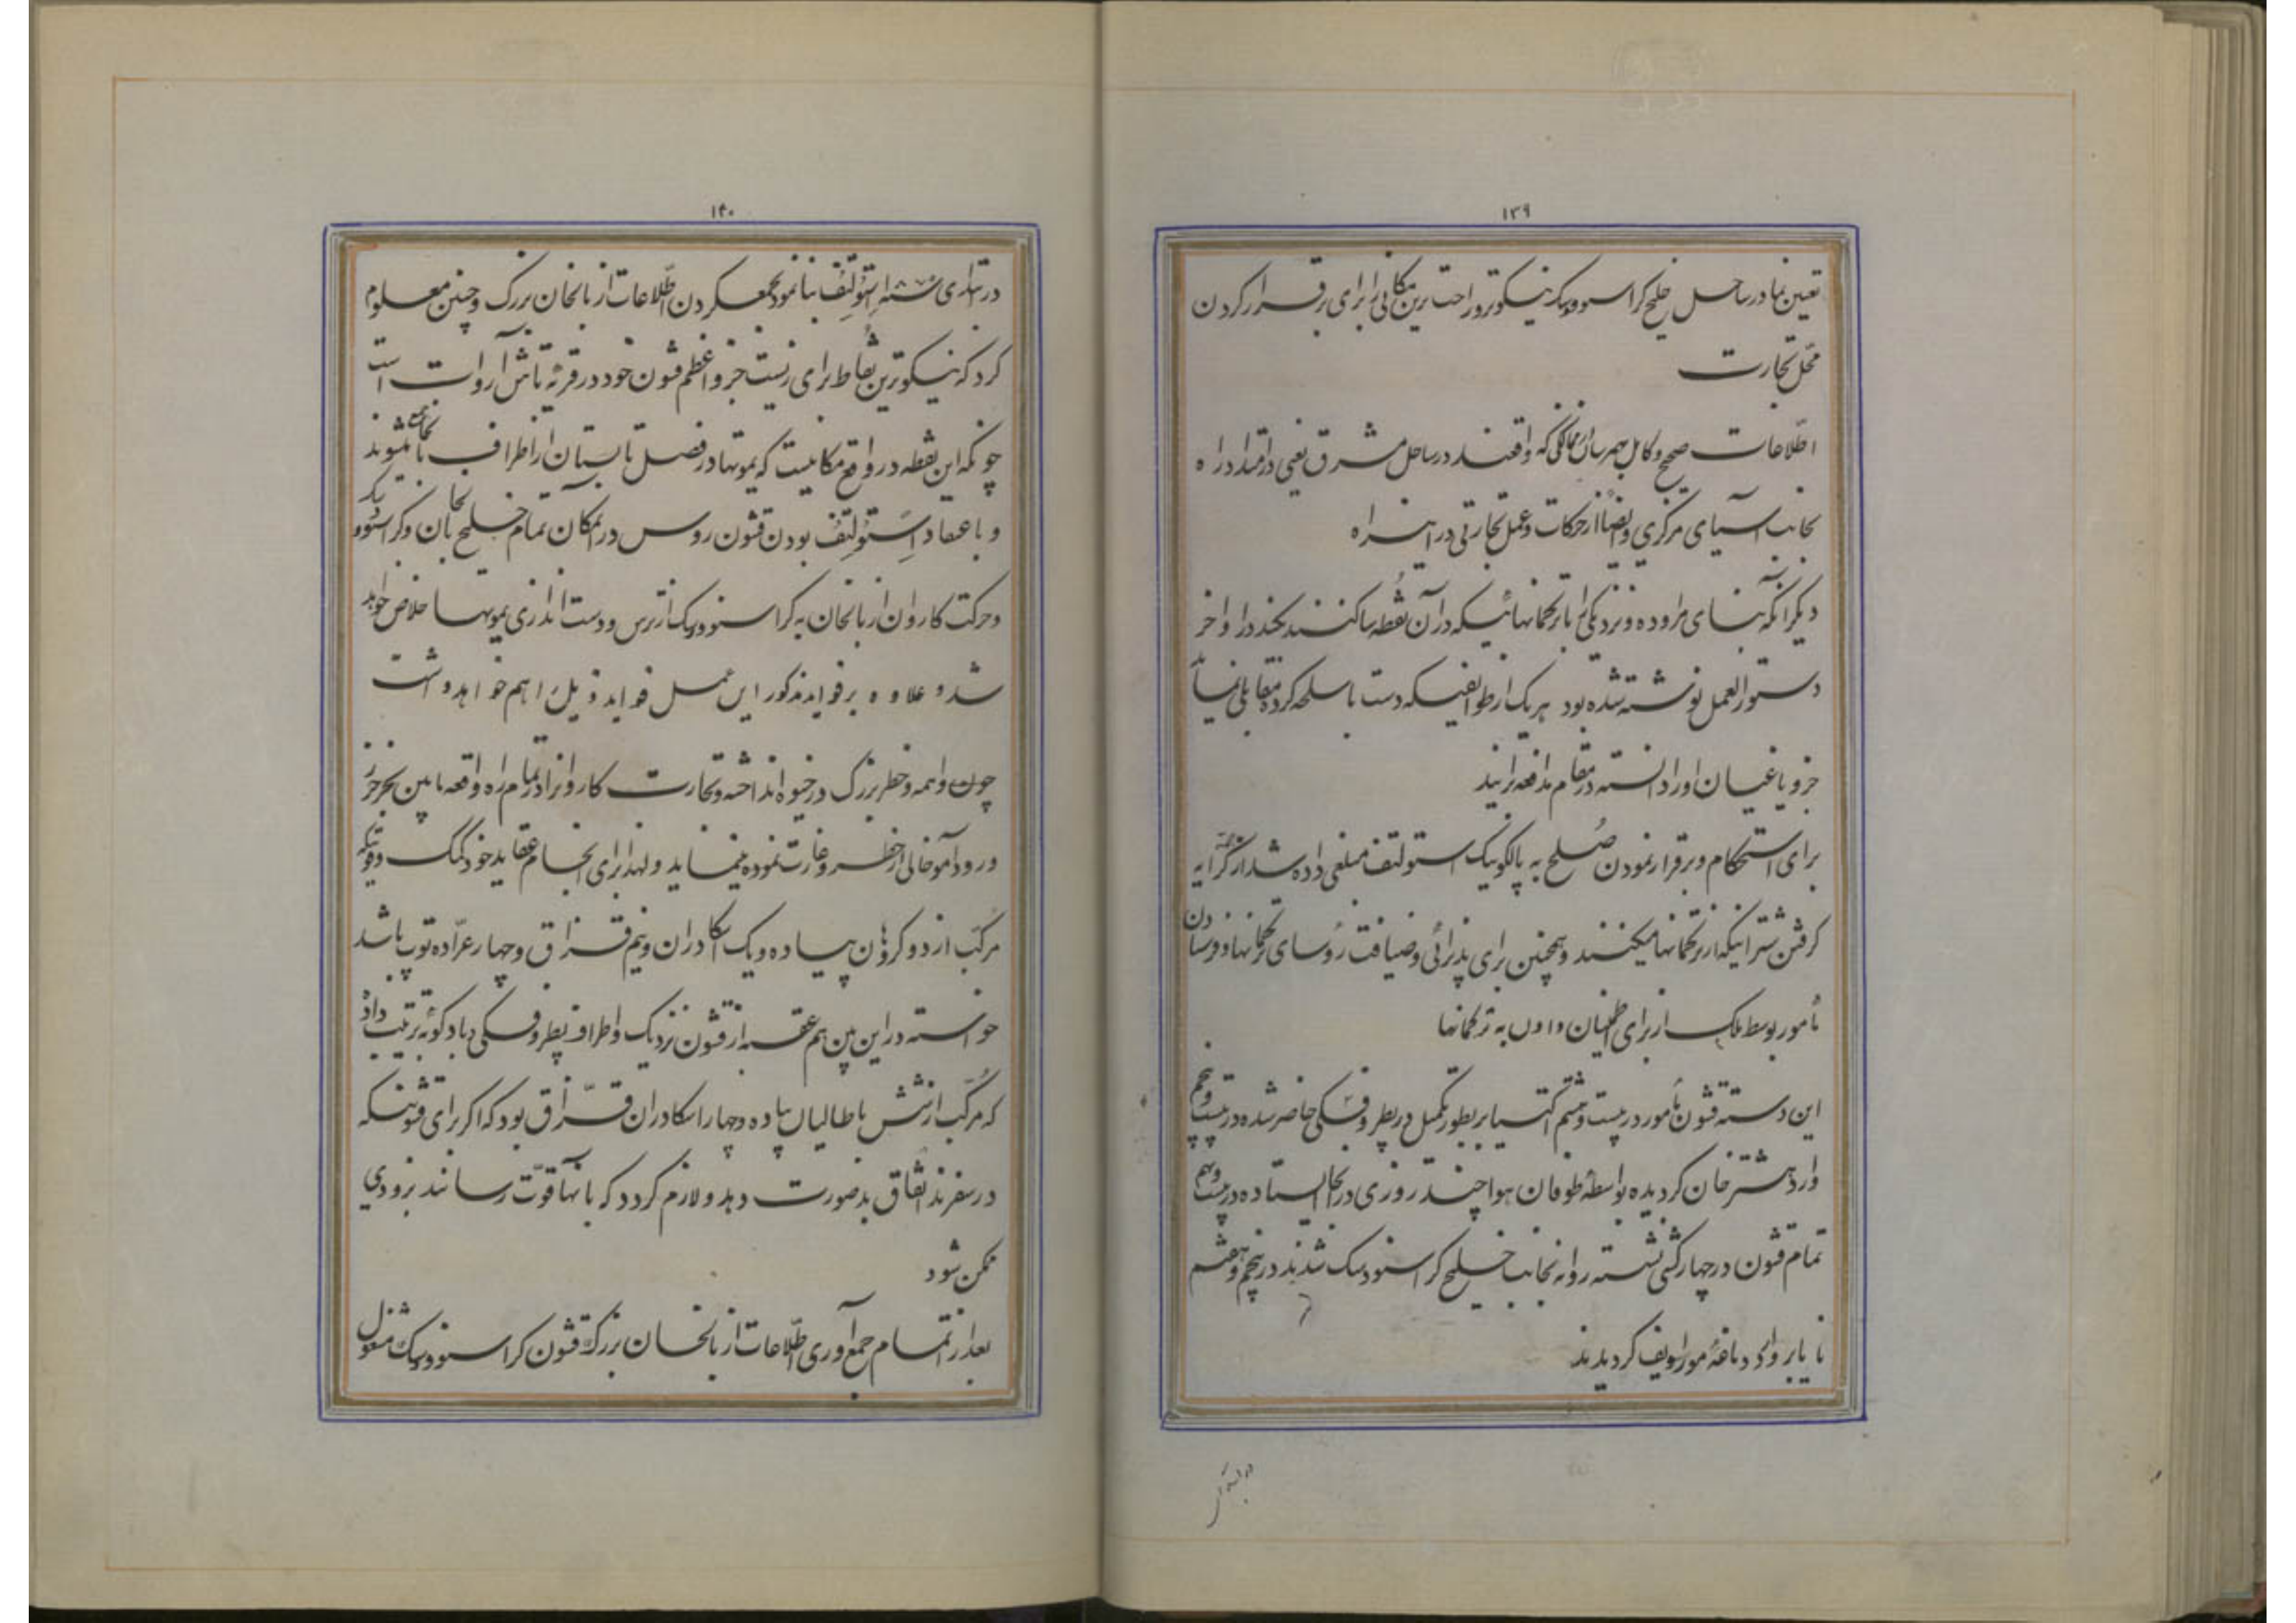 ۱۳۹
تعیین نماید در ساحل خلیج کراسنوودسک نیکوتر و راحت ترین مکانی را برای برقرار کردن
محل تجارت
اطلاعات صحیح و کامل بهم رساندن از ممالکی که واقعند در ساحل مشرق یعنی در امتداد راه
بجانب آسیای مرکزی و ایضاً از حرکات و عمل تجارتی در این راه
دیگر آنکه بنای مراوده و نزدیکی را با ترکمانهائیکه در آن نقطه ساکنند بکند در اواخر
دستور العمل نوشته شده بود هر یک از طوایفیکه دست باسلحه کرده مقابلی نماید
جزو یاغیان او را دانسته در مقام مدافعه برآیند
برای استحکام و برقرار نمودن صلح به پالکونیک استولتف مبلغی داده شد از کرایه
گرفتن شترانیکه از ترکمانها میکنند و همچنین برای پذیرائی و ضیافت رؤسای ترکمانها و فرستادن
مأمور بوسط ملک از برای اطمینان دادن به ترکمانها
این دسته قشون مأمور در بیست و هشتم اکتیابر بطور تکمیل در پطروفسکی حاضر شده در بیست و پنجم
وارد هشترخان گردیده بواسطهٔ طوفان هوا چند روزی در آنجا ایستاده در بیست و نهم
تمام قشون در چهار کشتی نشسته روانه بجانب خلیج کراسنوودسک شدند در پنجم و هفتم
نایابر وارد دماغهٔ موراویف گردیدند
در ابتدای
۱۴۰
در ابتدای سنه استولتف بنا نمود بجمع کردن اطلاعات از بالخان بزرگ و چنین معلوم
کرد که نیکوترین نقاط برای زیست جزو اعظم قشون خود در قریهٔ تاش آروات است
چونکه این نقطه در واقع مکانیست که یموتها در فصل تابستان از اطراف بآنجا جمع میشوند
و باعتقاد استولتف بودن قشون روس در آنمکان تمام خلیج بالخان و کراسنوودسک
و حرکت کاروان از بالخان به کراسنوودسک از ترس و دست اندازی یموتها خلاص خواهد
شد و علاوه بر فواید مذکور این عمل فواید ذیل را هم خواهد داشت
چون واهمه و خطر بزرگ در خیوه انداخته و تجارت کاروانرا در تمام راه واقعه مابین بحر خزر
و رود آمو خالی از خطر و غارت نموده مینماید و لهذا برای انجام عقاید خود کمک و قوتیکه
مرکب از دو کرؤن پیاده و یک اسکادران و نیم قزاق و چهار عراده توپ باشد
خواسته در این بین هم عقبه از قشون نزدیک و اطراف پطروفسکی و بادکوبه ترتیب داد
که مرکب از شش باطالیان پیاده و چهار اسکادران قزاق بود که اگر برای قشونیکه
در سفرند اتفاق بد صورت دهد و لازم گردد که بآنها قوت رسانند بزودی
ممکن شود
بعد از اتمام جمع آوری اطلاعات از بالخان بزرگ قشون کراسنوودسک مشغول